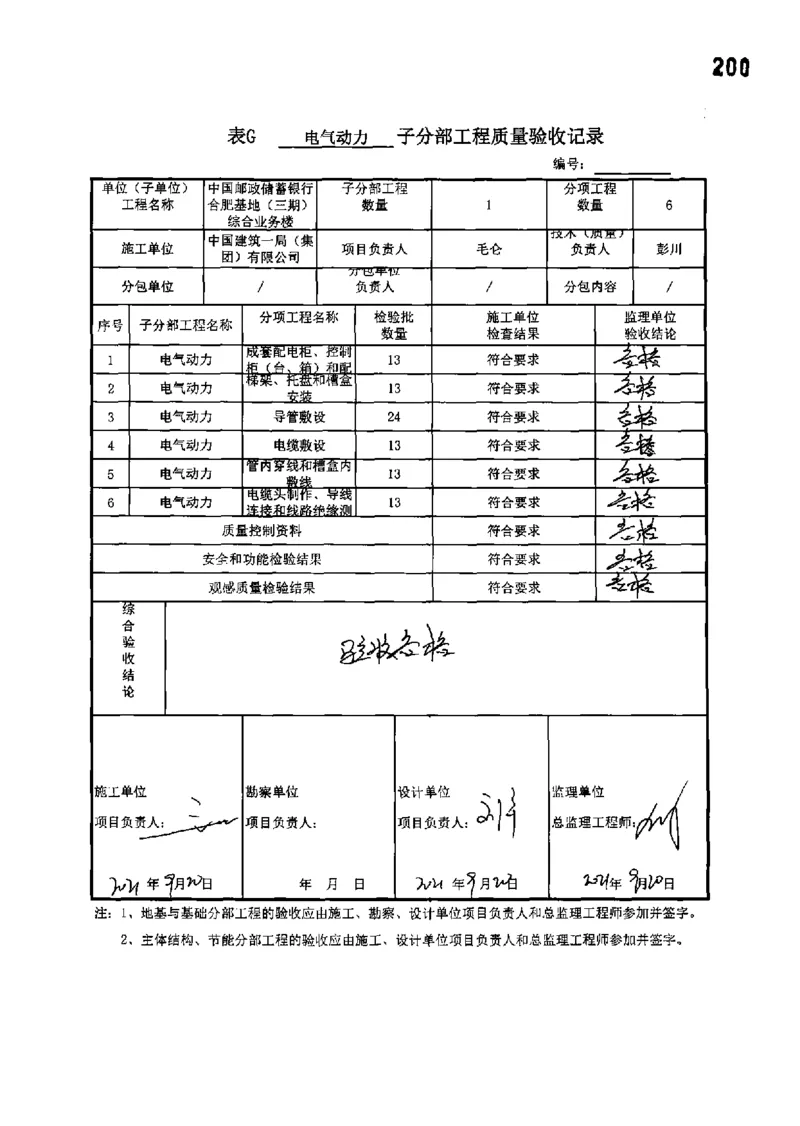 200
表G 电气动力 子分部工程质量验收记录
编号:
单位(子单位)工程名称 中国邮政储蓄银行合肥基地(三期)综合业务楼 子分部工程数量 1 分项工程数量 6
施工单位 中国建筑一局(集团)有限公司 项目负责人 毛仑 技术(质量)负责人 彭川
分包单位 / 分包单位负责人 / 分包内容 /
序号 子分部工程名称 分项工程名称 检验批数量 施工单位检查结果 监理单位验收结论
1 电气动力 成套配电柜、控制柜(台、箱)和配 13 符合要求 合格
2 电气动力 梯架、托盘和槽盒安装 13 符合要求 合格
3 电气动力 导管敷设 24 符合要求 合格
4 电气动力 电缆敷设 13 符合要求 合格
5 电气动力 管内穿线和槽盒内敷线 13 符合要求 合格
6 电气动力 电缆头制作、导线连接和线路绝缘测 13 符合要求 合格
质量控制资料 符合要求 合格
安全和功能检验结果 符合要求 合格
观感质量检验结果 符合要求 合格
综合验收结论 验收合格
施工单位 勘察单位 设计单位 监理单位
项目负责人: 项目负责人: 项目负责人: 总监理工程师:
2021年9月20日 年 月 日 2021年9月20日 2021年9月20日
注:1、地基与基础分部工程的验收应由施工、勘察、设计单位项目负责人和总监理工程师参加并签字。
2、主体结构、节能分部工程的验收应由施工、设计单位项目负责人和总监理工程师参加并签字。